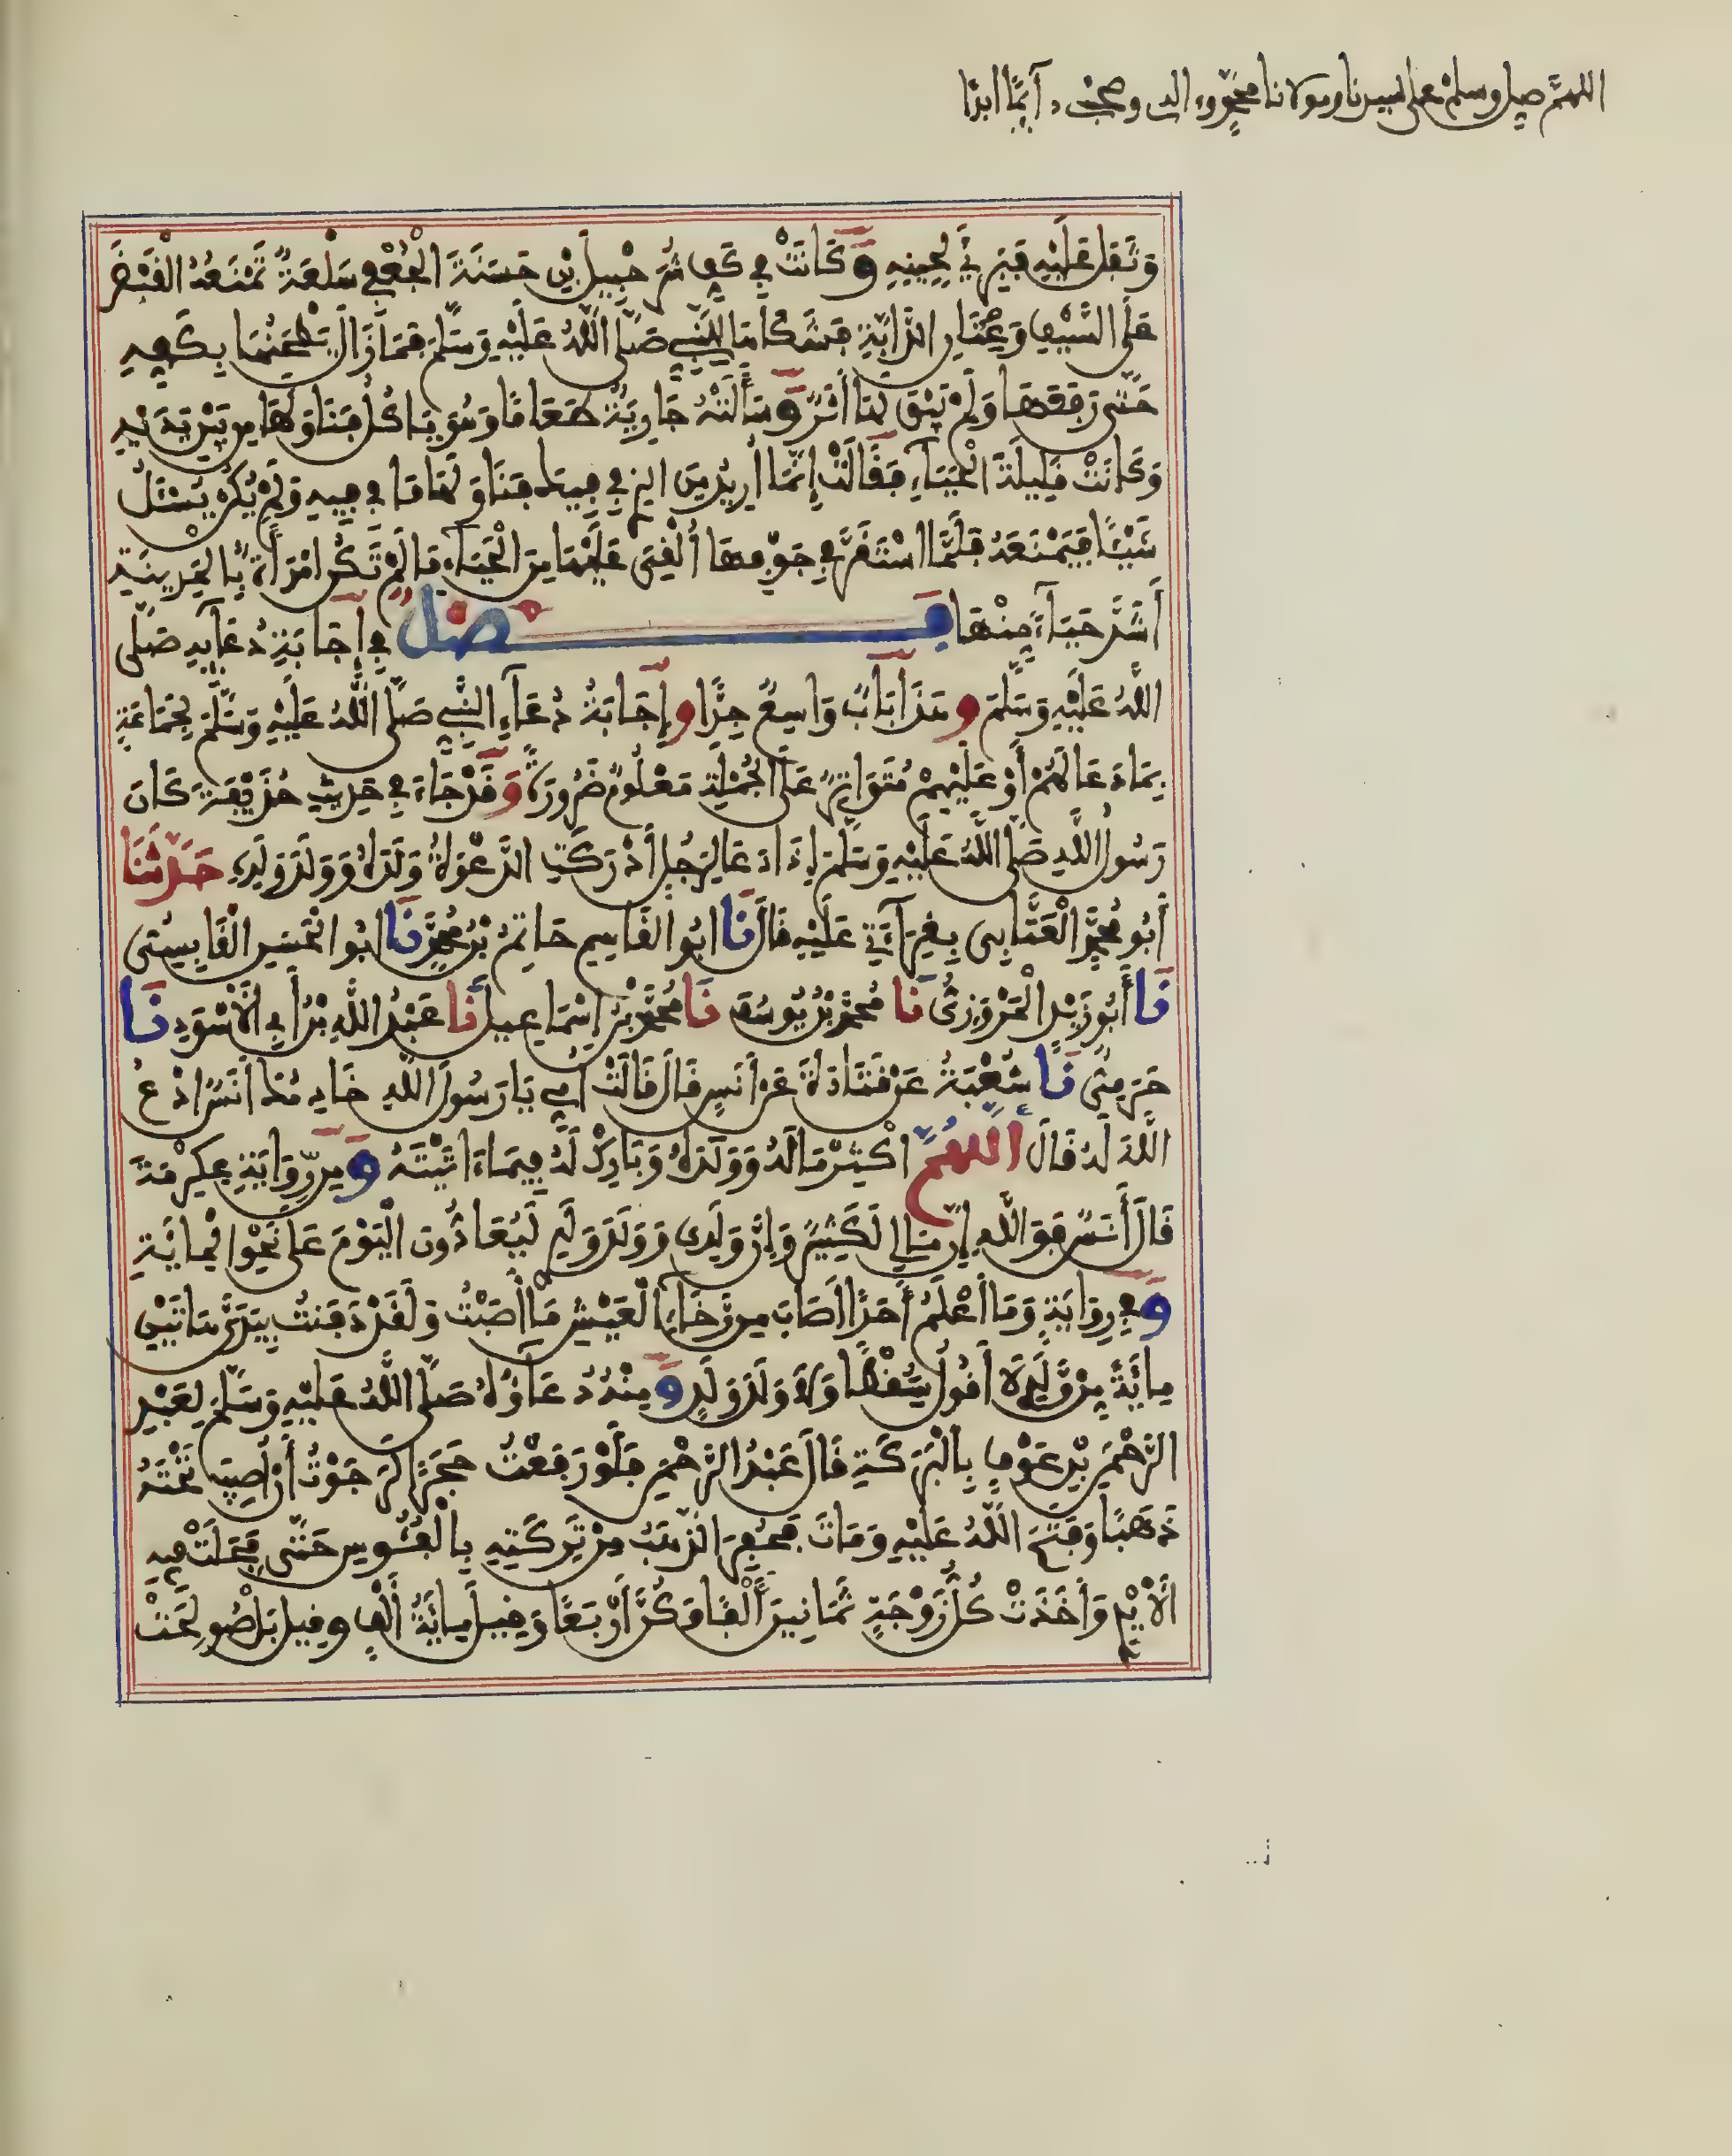 اللهم صل وسلم على سيدنا ومولانا محمد وءاله وصحبه دآئما ابدا
وَتَفَلَ عَلَيْهِ فَبَرِئَ لِحِينِهِ وَكَانَتْ فِي كَفِّ شُرَحْبِيلَ بْنِ حَسَنَةَ الْجُعْفِي سَلْعَةٌ تَمْنَعُهُ الْقَبْضَ
عَلَى السَّيْفِ وَعِنَانِ الدَّابَّةِ فَشَكَاهَا لِلنَّبِيِّ صَلَّى اللَّهُ عَلَيْهِ وَسَلَّمَ فَمَا زَالَ يَطْحَنُهَا بِكَفِّهِ
حَتَّى رَفَعَهَا وَلَمْ يَبْقَ لَهَا أَثَرٌ وَسَأَلَتْهُ جَارِيَةٌ طَعَامًا وَهُوَ يَاكُلُ فَنَاوَلَهَا مِن بَيْنِ يَدَيْهِ
وَكَانَتْ قَلِيلَةَ الْحَيَاءِ فَقَالَتْ إِنَّمَا أُرِيدُ مِنَ الذِي فِي فِيكَ فَنَاوَلَهَا مَا فِي فِيهِ وَلَمْ يَكُنْ يُسْئَلُ
شَيْئًا فَيَمْنَعَهُ فَلَمَّا اسْتَقَرَّ فِي جَوْفِهَا أُلْقِيَ عَلَيْهَا مِنَ الْحَيَآءِ مَا لَمْ تَكُنِ امْرَأَةٌ بِالْمَدِينَةِ
أَشَدَّ حَيَآءً مِنْهَا فَصْلٌ فِي إِجَابَةِ دُعَآئِهِ صَلَّى
اللَّهُ عَلَيْهِ وَسَلَّمَ وَهَذَا بَابٌ وَاسِعٌ جِدًّا وَإِجَابَةُ دُعَآءِ النَّبِيِّ صَلَّى اللَّهُ عَلَيْهِ وَسَلَّمَ لِجَمَاعَةٍ
بِمَا دَعَا لَهُمْ أَوْ عَلَيْهِمْ مُتَوَاتِرٌ عَلَى الْجُمْلَةِ مَعْلُومٌ ضَرُورَةً وَقَدْ جَاءَ فِي حَدِيثِ حُذَيْفَةَ كَانَ
رَسُولُ اللَّهِ صَلَّى اللَّهُ عَلَيْهِ وَسَلَّمَ إِذَا دَعَا لِرَجُلٍ أَدْرَكَتِ الدَّعْوَةُ وَلَدَهُ وَوَلَدَ وَلَدِهِ حَدَّثَنَا
أَبُو مُحَمَّدٍ الْعَتَّابِي بِقِرَآءَتِي عَلَيْهِ قَالَ نَا ابُو الْقَاسِمِ حَاتِمُ بْنُ مُحَمَّدٍ نَا ابُو الْحَسَنِ الْقَابِسِيُّ
نَا أَبُو زَيْدٍ الْمَرْوَزِيُّ نَا مُحَمَّدُ بْنُ يُوسُفَ نَا مُحَمَّدُ بْنُ إِسْمَاعِيلَ نَا عَبْدُ اللَّهِ بْنُ أَبِي الْأَسْوَدِ نَا
حَرَمِيٌّ نَا شُعْبَةُ عَنْ قَتَادَةَ عَنْ أَنَسٍ قَالَ قَالَتْ أُمِّي يَا رَسُولَ اللَّهِ خَادِمُكَ أَنَسٌ ادْعُ
اللَّهَ لَهُ قَالَ اللَّهُمَّ اكْثِرْ مَالَهُ وَوَلَدَهُ وَبَارِكْ لَهُ فِيمَا ءَاتَيْتَهُ وَمِن رِّوَايَةِ عِكْرِمَةَ
قَالَ أَنَسٌ فَوَ اللَّهِ إِنَّ مَالِي لَكَثِيرٌ وَإِنَّ وَلَدِي وَوَلَدَ وَلَدِي لَيُعَادُّونَ الْيَوْمَ عَلَى نَحْوِ الْمِائَةِ
وَفِي رِوَايَةٍ وَمَا أَعْلَمُ أَحَدًا أَصَابَ مِن رَّخَآءِ الْعَيْشِ مَا أَصَبْتُ وَلَقَدْ دَفَنتُ بِيَدَيَّ هَاتَيْنِ
مِائَةً مِنْ وَلَدِي لَا أَقُولُ سِقْطًا وَلَا وَلَدَ وَلَدٍ وَمِنْهُ دُعَاؤُهُ صَلَّى اللَّهُ عَلَيْهِ وَسَلَّمَ لِعَبْدِ
الرَّحْمَنِ بْنِ عَوْفٍ بِالْبَرَكَةِ قَالَ عَبْدُ الرَّحْمَنِ فَلَوْ رَفَعْتُ حَجَرًا لَرَجَوْتُ أَنْ أُصِيبَ تَحْتَهُ
ذَهَبًا وَفَتَحَ اللَّهُ عَلَيْهِ وَمَاتَ فَحُفِرَ الذَّهَبُ مِنْ تَرِكَتِهِ بِالْفُئُوسِ حَتَّى مَجَلَتْ فِيهِ
الْأَيْدِي وَأَخَذَتْ كُلُّ زَوْجَةٍ ثَمَانِينَ أَلْفًا وَكُنَّ أَرْبَعًا وَقِيلَ مِائَةُ أَلْفٍ وَقِيلَ بَلْ صُولِحَتْ